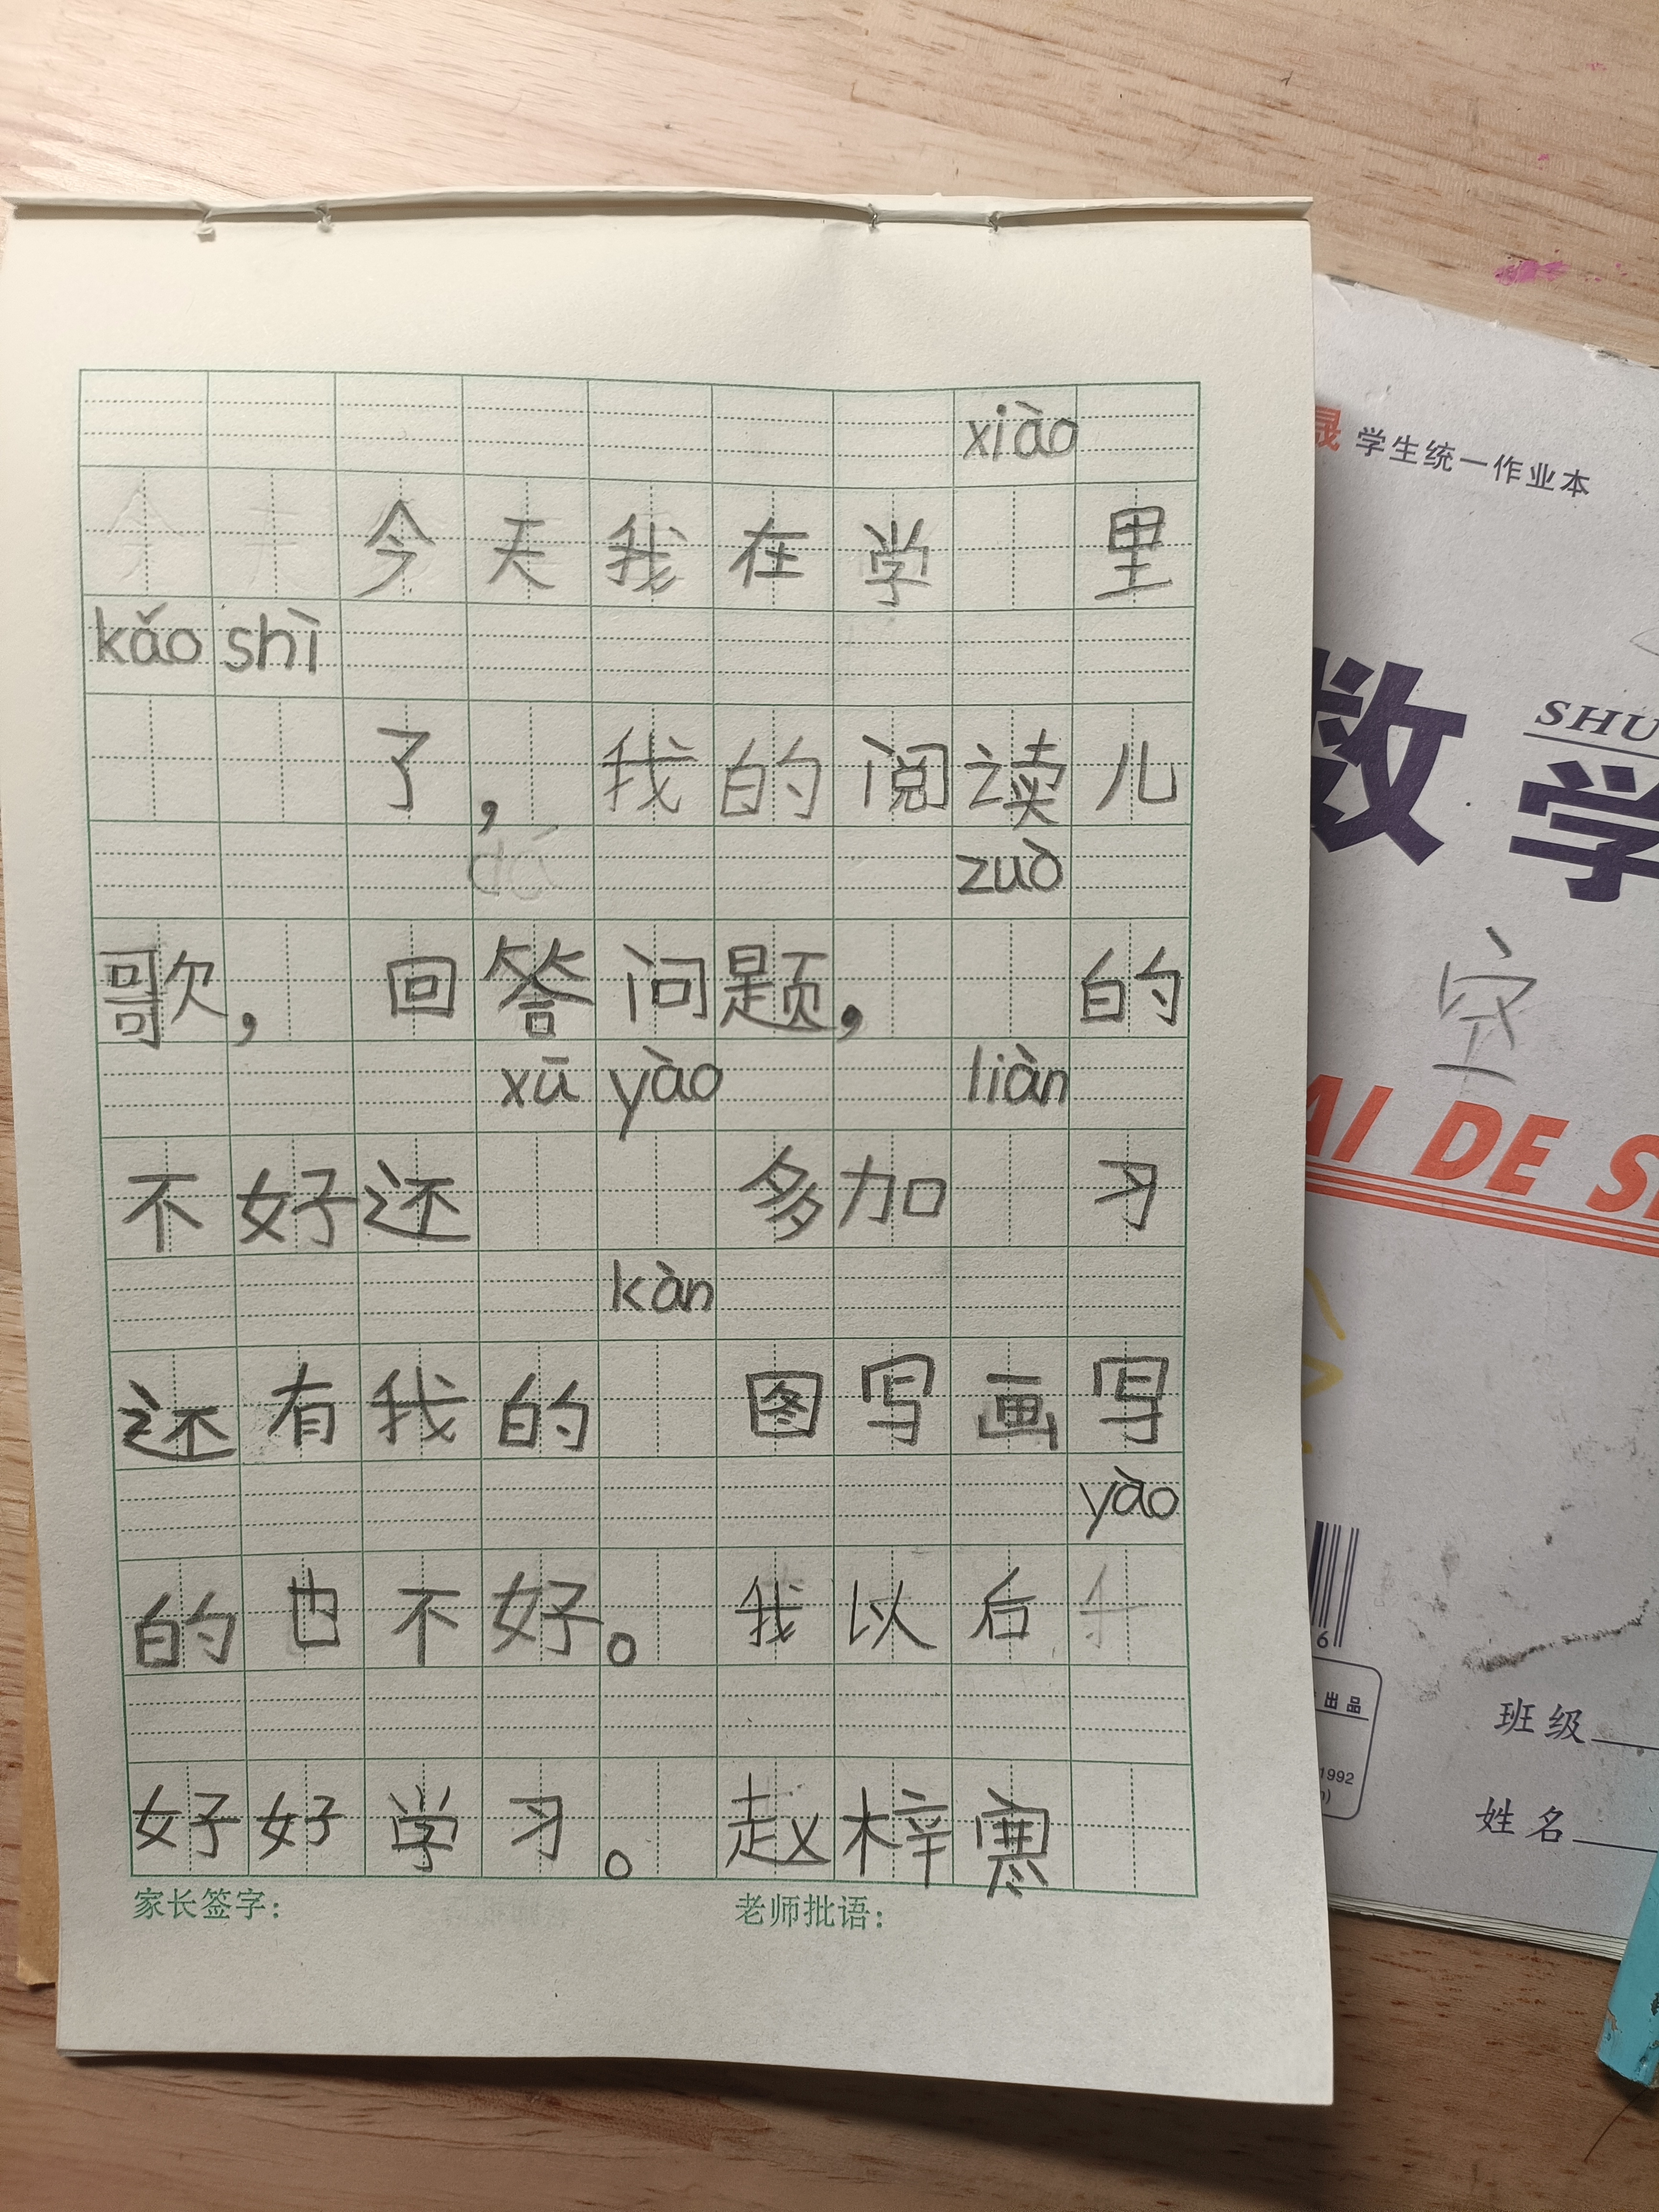 xiào
今天我在学 里
kǎo shì
了，我的阅读儿
zuò
歌，回答问题， 的
xū yào liàn
不好还 多加 习
kàn
还有我的 图写画写
yào
的也不好。我以后
好好学习。赵梓寒
家长签字： 老师批语：
晟 学生统一作业本
数学
SHU
空
AI DE S
6
出品
1992
班级
姓名